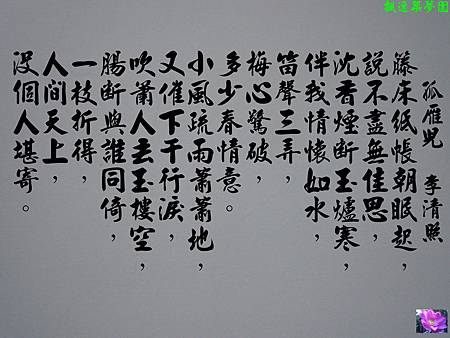 孤雁兒 李清照
藤床紙帳朝眠起，
說不盡無佳思，
沈香煙斷玉爐寒，
伴我情懷如水，
笛聲三弄，
梅心驚破，
多少春情意。
小風疏雨蕭蕭地，
又催下千行淚，
吹簫人去玉樓空，
腸斷與誰同倚，
一枝折得，
人間天上，
沒個人堪寄。